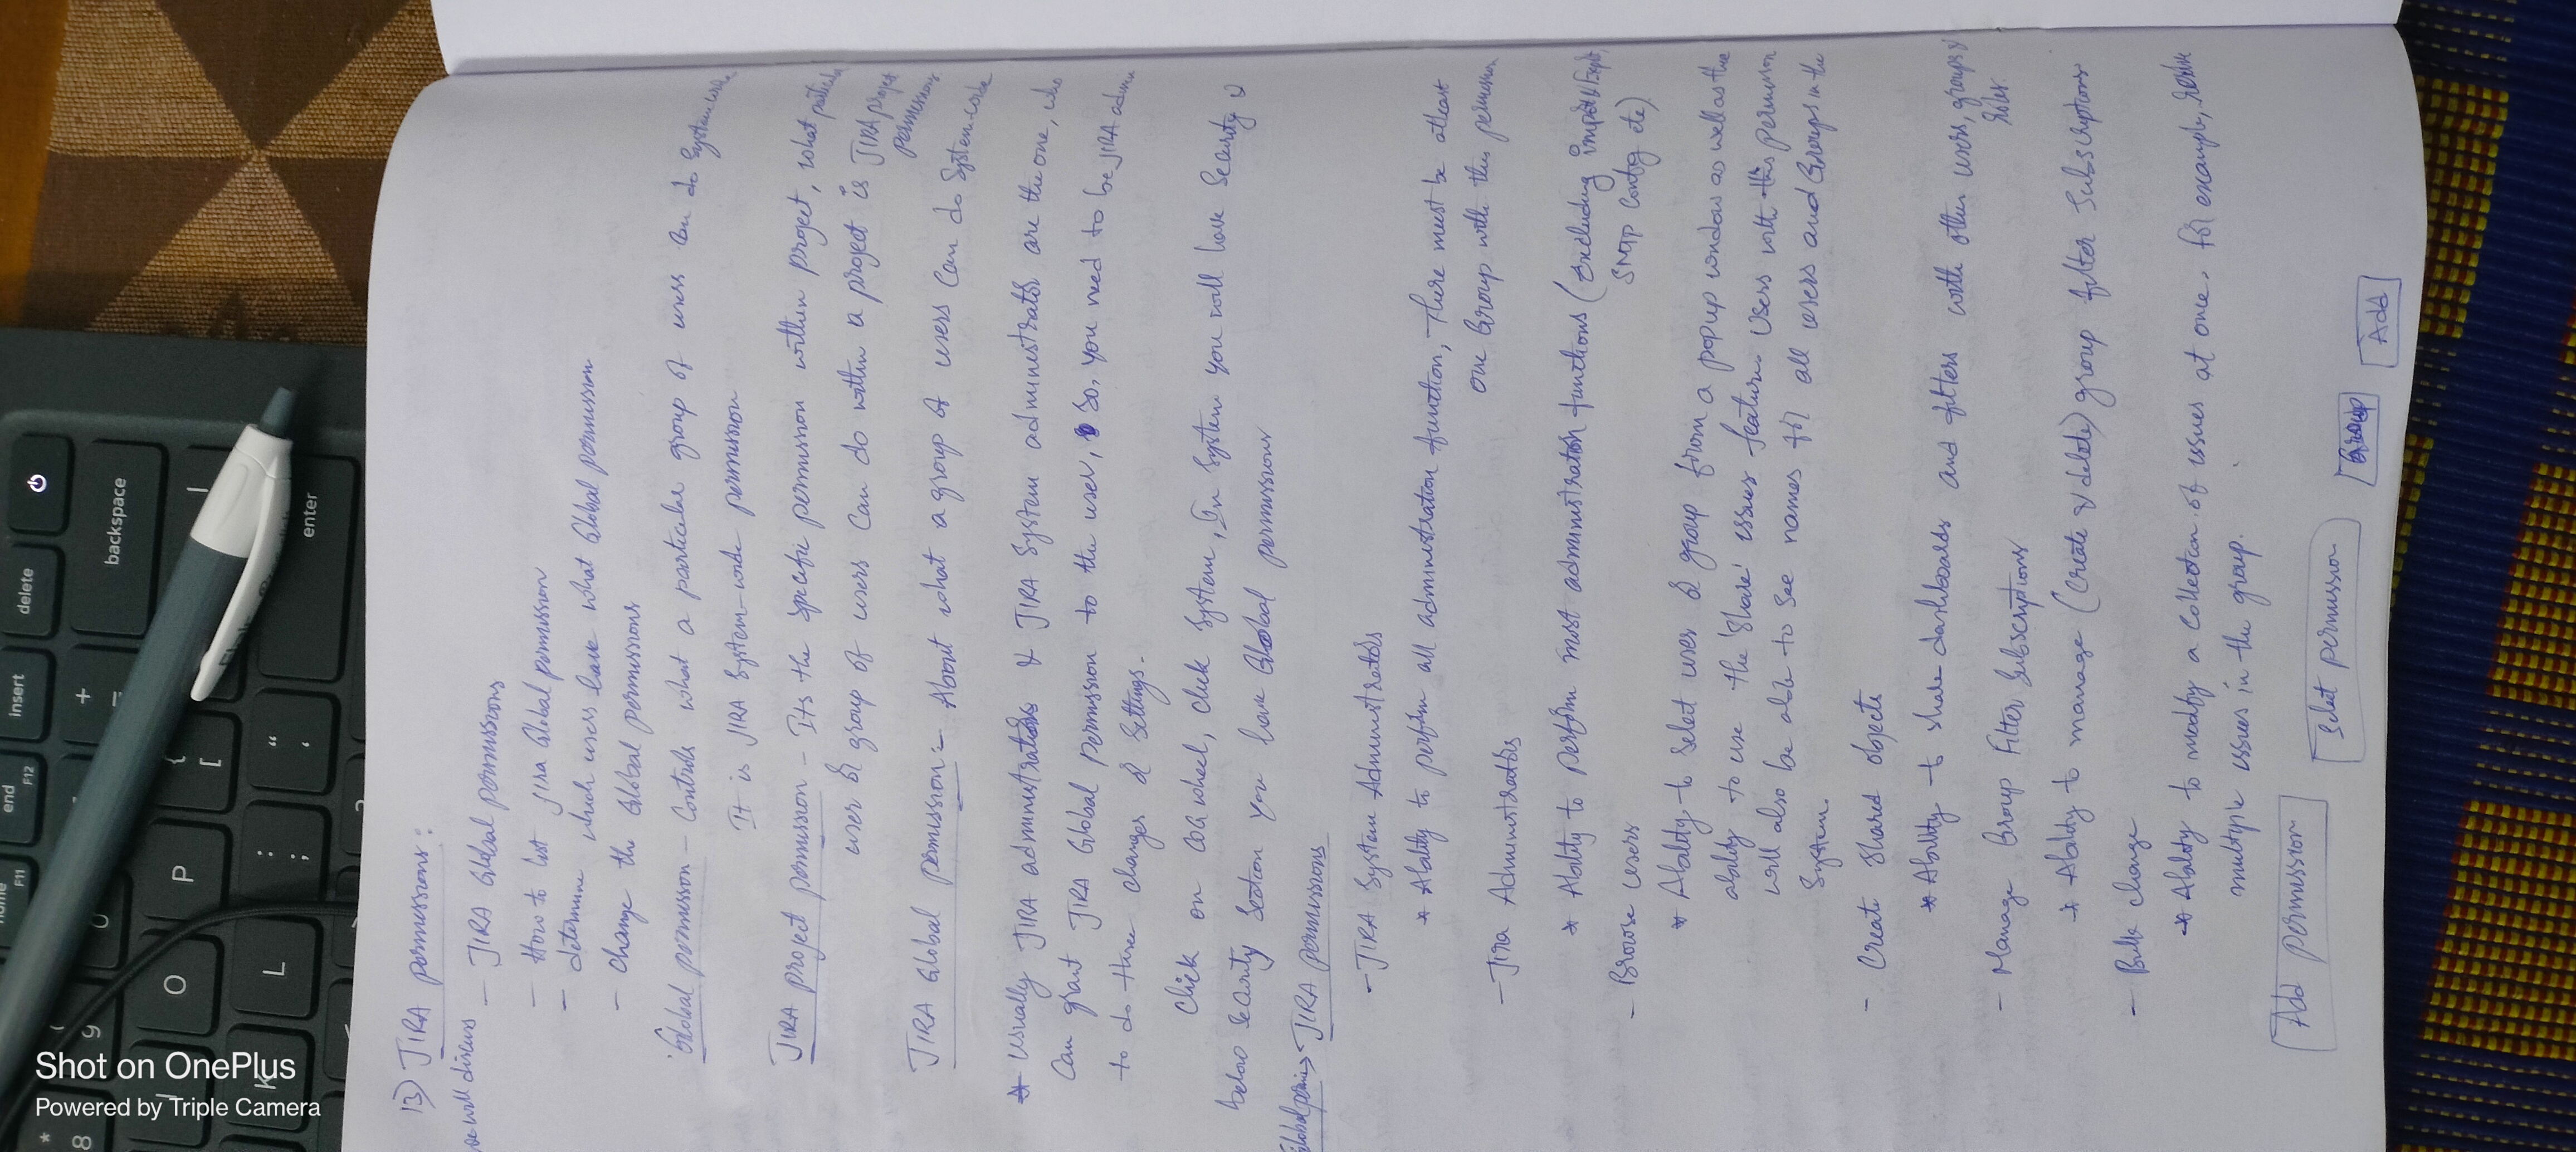 home
F11
end
F12
insert
delete
*
8
(
9
0
+
=
backspace
O
P
{
[
K
L
:
;
"
'
enter
Shot on OnePlus
Powered by Triple Camera
13) JIRA permissions:
we will discuss - JIRA Global permissions
- How to list jira Global permission
- determine which users have what Global permission
- change the Global permissions
Global permission - Controls what a particular group of users can do System wide
It is JIRA System-wide permission
JIRA project permission - Its the specific permission within project, what particular
user or group of users can do within a project is JIRA project
permissions
JIRA Global permission:- About what a group of users can do System-wide
* Usually JIRA administrators & JIRA System administrator are the one, who
can grant JIRA Global permission to the user, so, you need to be JIRA admin
to do these changes or settings.
Click on COG wheel, click System, In System you will have Security &
below Security Section you have Global permissions
Global permis → JIRA permissions
- JIRA System Administrators
* Ability to perform all administration function, There must be atleast
one Group with this permission
- Jira Administrators
* Ability to perform most administration functions (Excluding import & Export,
SMTP Config etc)
- Browse users
* Ability to select user or group from a popup window as well as the
ability to use the 'Share' issues feature. Users with this permission
will also be able to see names for all users and Groups in the
System.
- Create shared objects
* Ability to share dashboards and filters with other users, groups &
roles.
- Manage Group Filter Subscriptions
* Ability to manage (create & delete) group filter Subscriptions
- Bulk change
* Ability to modify a collection of issues at once. for example, resolve
multiple issues in the group.
Add permission
Select permission
Group
Add